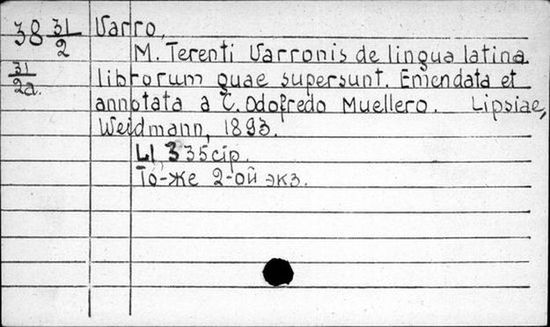 38 31/2 Varro,
M. Terenti Varronis de lingua latina
31/2a. librorum quae supersunt. Emendata et
annotata a C. Odofredo Muellero. Lipsiae,
Weidmann, 1893.
LI, 335 cip.
То-же 2-ой экз.